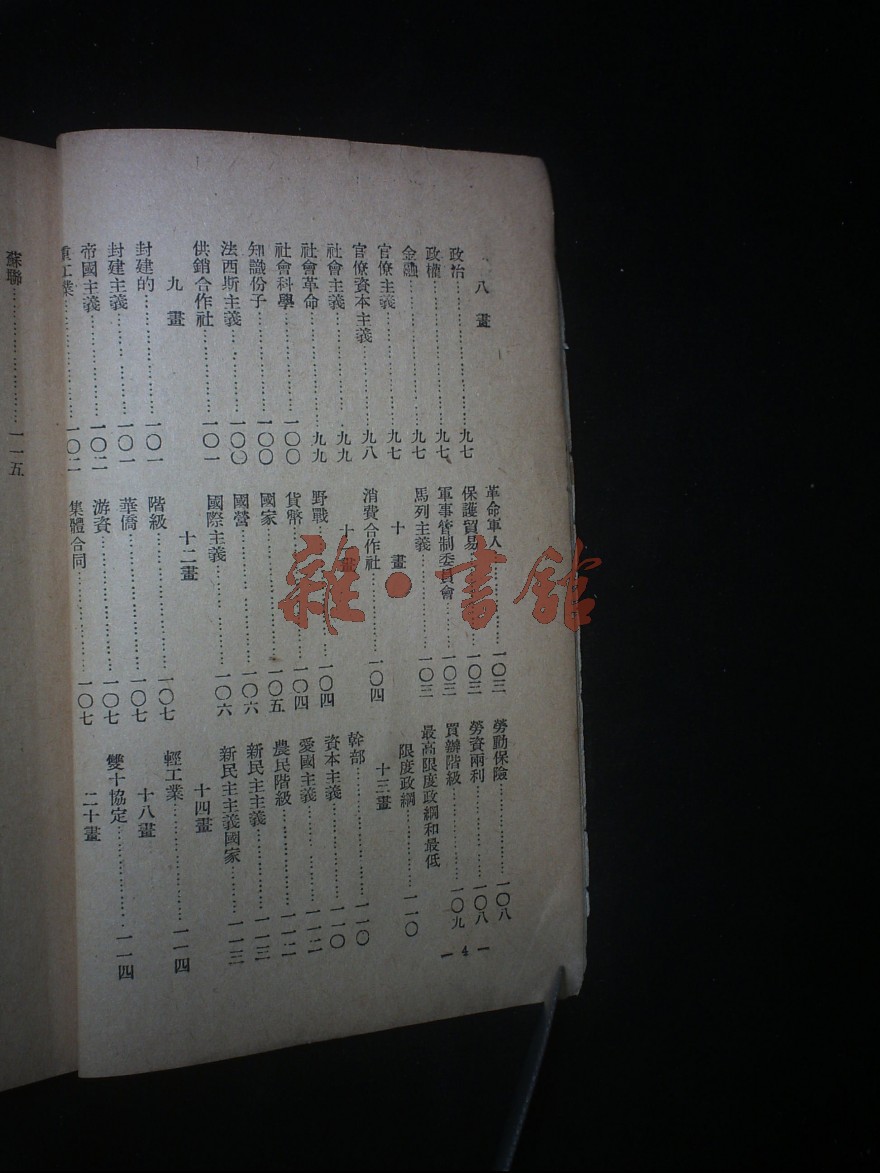 八畫
政治…………………九七
政權…………………九七
金融…………………九七
官僚主義……………九七
官僚資本主義………九八
社會主義……………九九
社會革命……………九九
社會科學……………一〇〇
知識份子……………一〇〇
法西斯主義…………一〇〇
供銷合作社…………一〇一
九畫
封建的………………一〇一
封建主義……………一〇一
帝國主義……………一〇二
重工業………………一〇二
革命軍人……………一〇三
保護貿易……………一〇三
軍事管制委員會……一〇三
馬列主義……………一〇三
十畫
消費合作社…………一〇四
十一畫
野戰…………………一〇四
貨幣…………………一〇四
國家…………………一〇五
國營…………………一〇六
國際主義……………一〇六
十二畫
階級…………………一〇七
華僑…………………一〇七
游資…………………一〇七
集體合同……………一〇七
勞動保險……………一〇八
勞資兩利……………一〇八
買辦階級……………一〇九
最高限度政綱和最低
限度政綱……………一一〇
十三畫
幹部…………………一一〇
資本主義……………一一〇
愛國主義……………一一二
農民階級……………一一二
新民主主義…………一一三
新民主主義國家……一一三
十四畫
輕工業………………一一四
十八畫
雙十協定……………一一四
二十畫
蘇聯…………………一一五
— 4 —
雜·書館